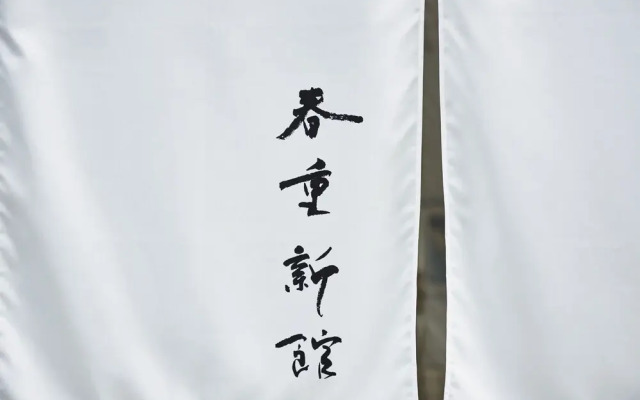 春重新館